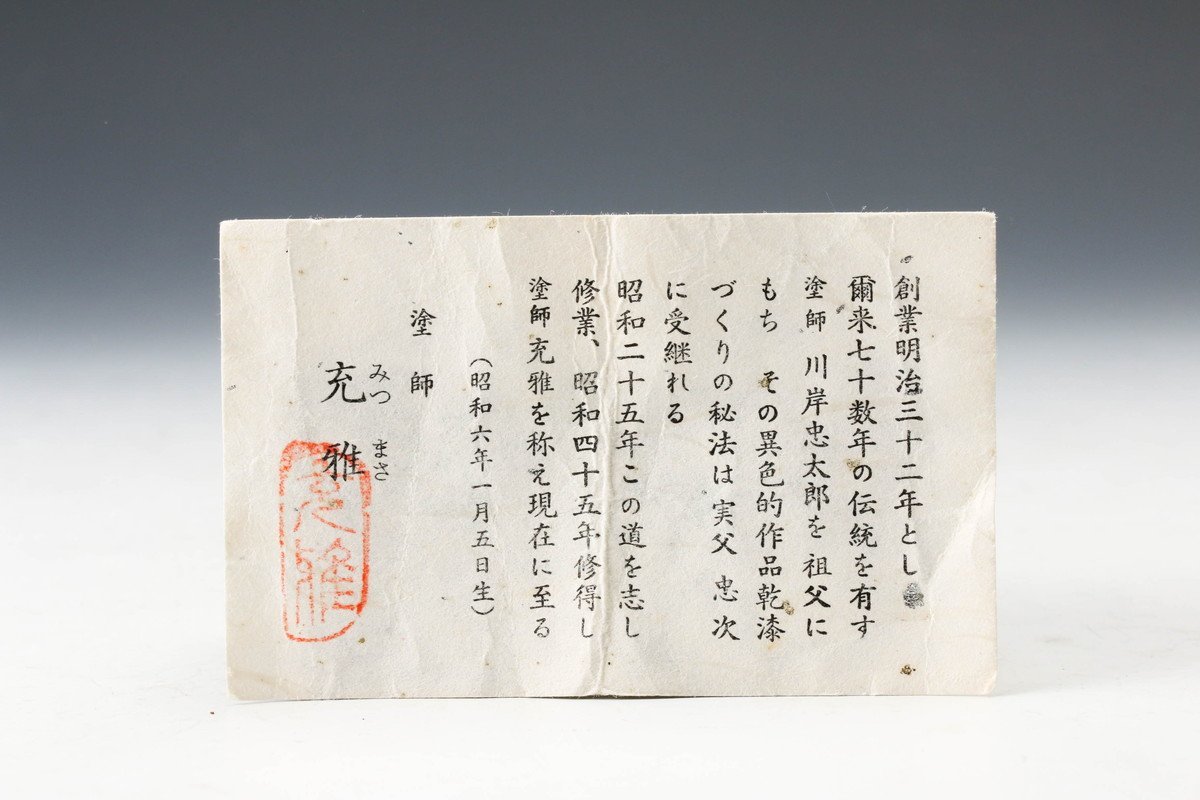 創業明治三十二年とし
爾来七十数年の伝統を有す
塗師 川岸忠太郎を祖父に
もち その異色的作品乾漆
づくりの秘法は実父 忠次
に受継れる
昭和二十五年この道を志し
修業、昭和四十五年修得し
塗師充雅を称え現在に至る
(昭和六年一月五日生)
塗師
みつ まさ
充雅
充雅